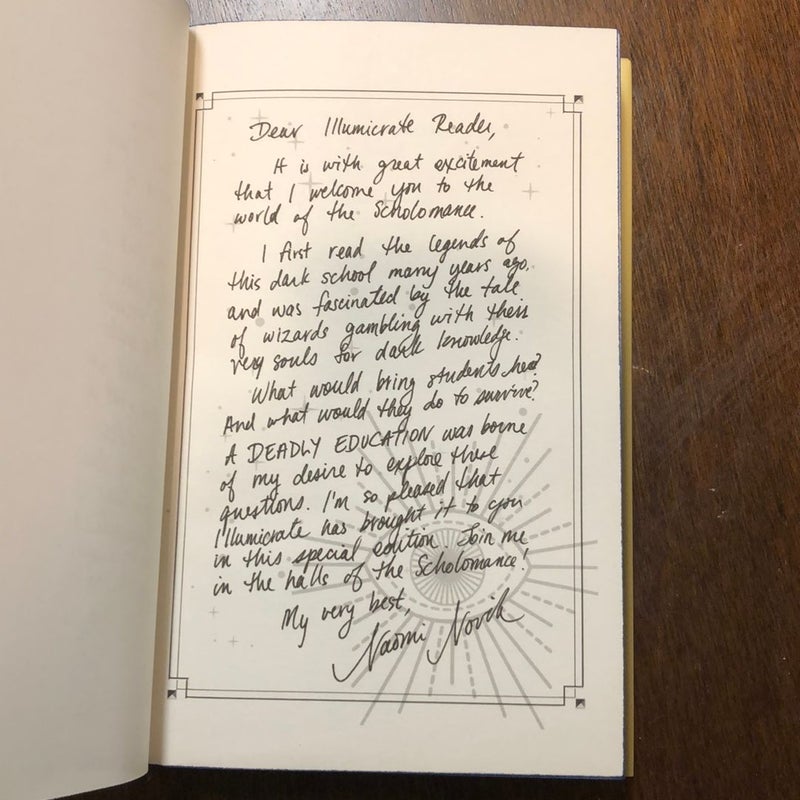 Dear Illumicrate Reader,
It is with great excitement
that I welcome you to the
world of the Scholomance.
I first read the legends of
this dark school many years ago,
and was fascinated by the tale
of wizards gambling with their
very souls for dark knowledge.
What would bring students here?
And what would they do to survive?
A DEADLY EDUCATION was borne
of my desire to explore these
questions. I'm so pleased that
Illumicrate has brought it to you
in this special edition. Join me
in the halls of the Scholomance!
My very best,
Naomi Novik